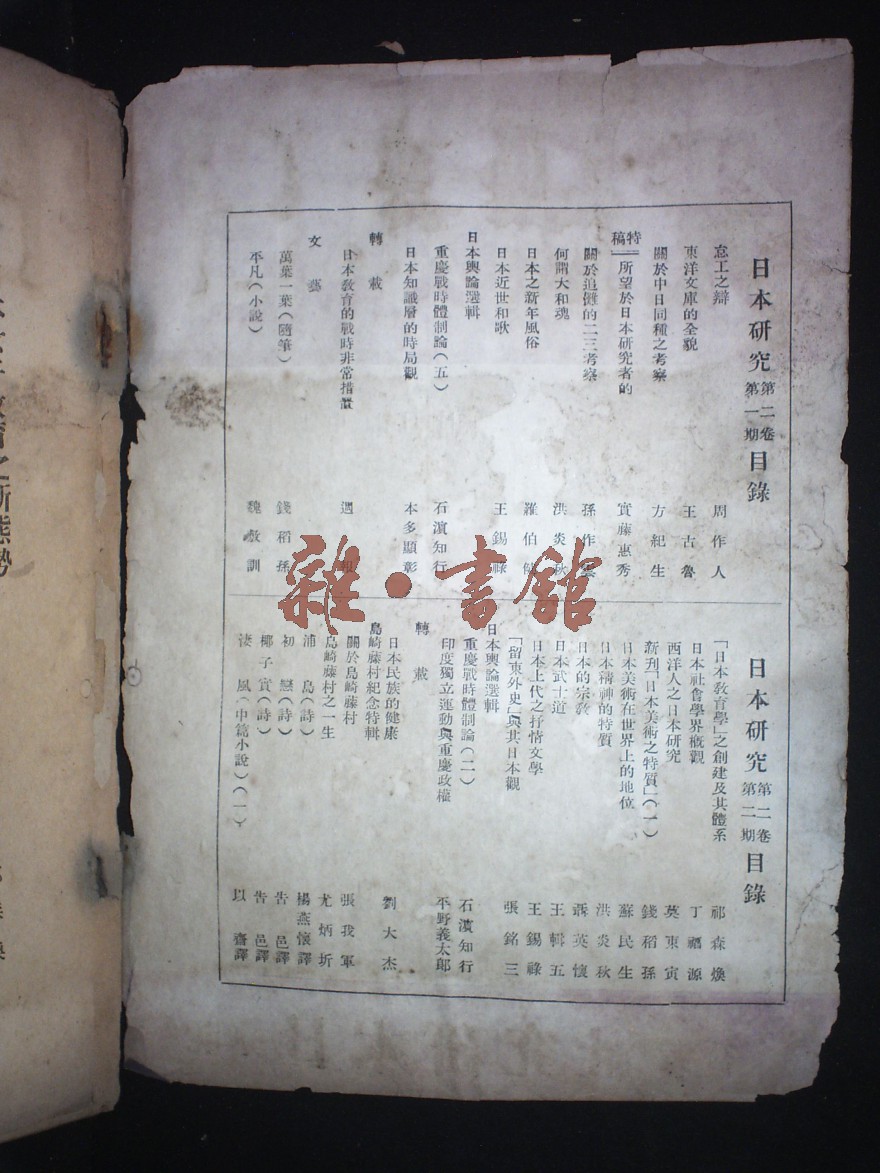 日本研究 第二卷第一期 目錄
忘工之辯 周作人
東洋文庫的全貌 王古魯
關於中日同種之考察 方紀生
特稿 所望於日本研究者的 實藤惠秀
關於追儺的二三考察 孫作雲
何謂大和魂 洪炎秋
日本之新年風俗 羅伯
日本近世和歌 王錫祿
日本輿論選輯
重慶戰時體制論(五) 石濱知行
日本知識層的時局觀 本多顯彰
轉載
日本教育的戰時非常措置
文藝
萬葉一葉(隨筆) 錢稻孫
平凡(小說) 魏敷訓
日本研究 第二卷第二期 目錄
「日本敎育學」之創建及其體系 祁森煥
日本社會學界槪觀 丁禩源
西洋人之日本研究 莫東寅
新刊「日本美術之特質」(一) 錢稻孫
日本美術在世界上的地位 蘇民生
日本精神的特質 洪炎秋
日本的宗敎 聶英懷
日本武士道 王輯五
日本上代之抒情文學 王錫祿
「留東外史」與其日本觀 張銘三
日本輿論選輯
重慶戰時體制論(二) 石濱知行
印度獨立運動與重慶政權 平野義太郎
轉載
日本民族的健康 劉大杰
島崎藤村紀念特輯
關於島崎藤村 張我軍
島崎藤村之一生 尤炳圻
浦島(詩) 楊燕懷譯
初戀(詩) 告邑譯
椰子實(詩) 告邑譯
淒風(中篇小說)(一) 以齋譯
雜·書館